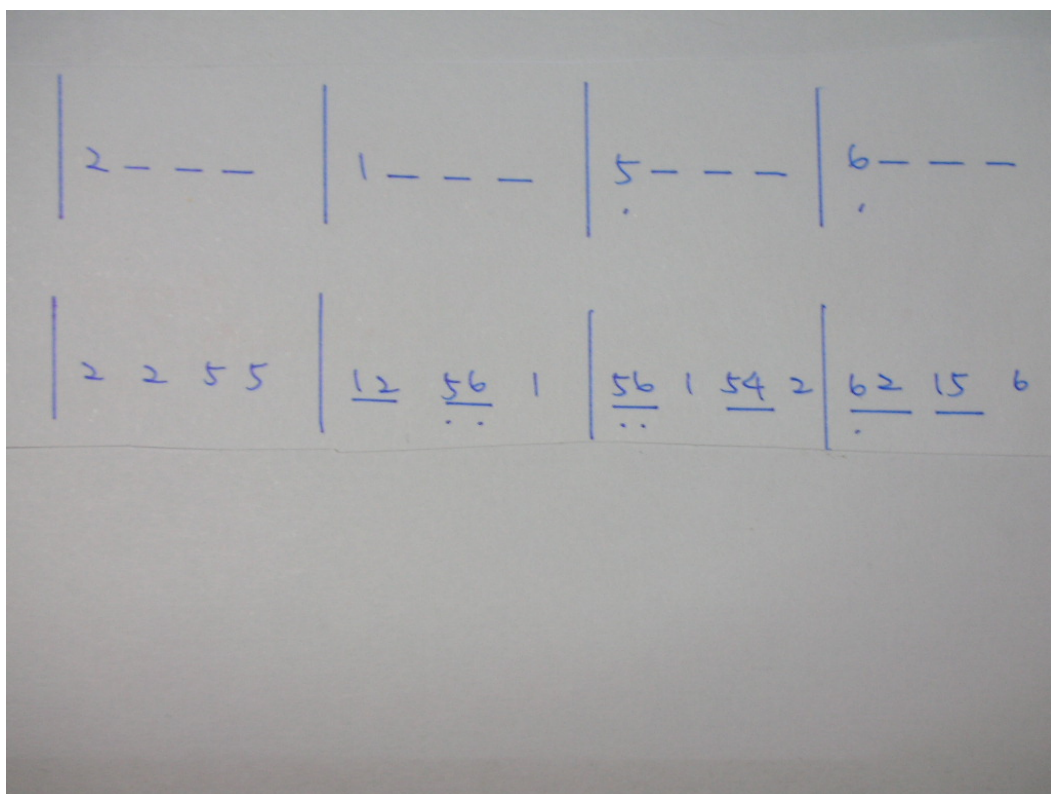 | 2 — — — | 1 — — — | 5̣ — — — | 6̣ — — —
| 2 2 5 5 | 1̲2̲ 5̤̲6̤̲ 1 | 5̤̲6̤̲ 1 5̲4̲ 2 | 6̤̲2̲ 1̲5̲ 6